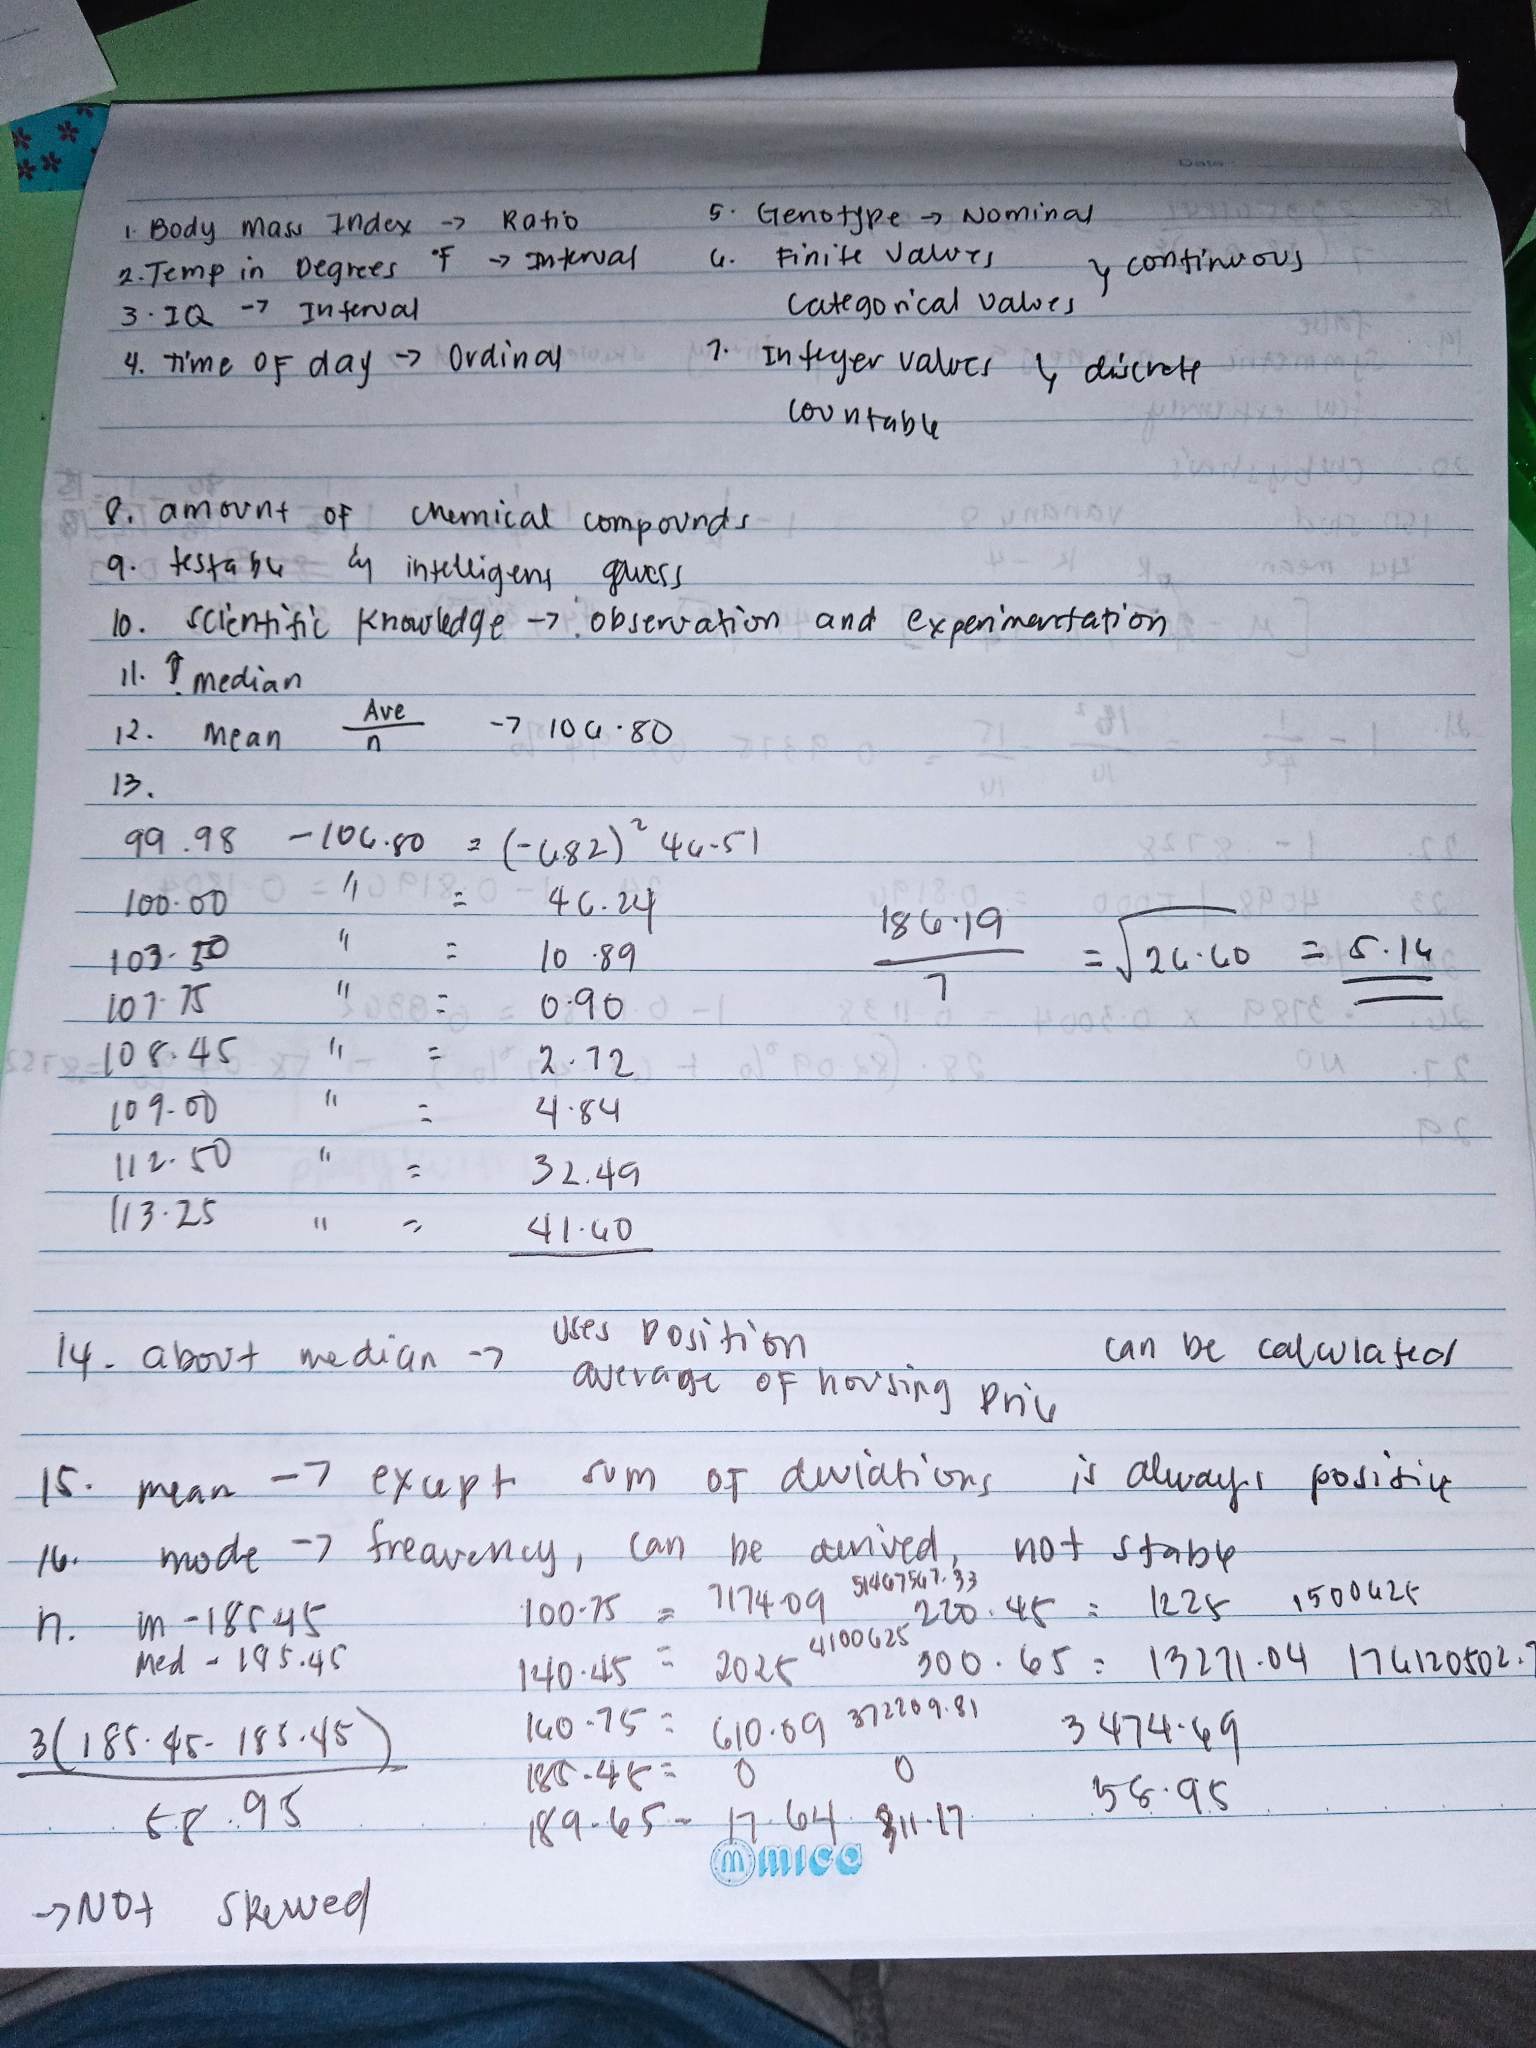 1. Body Mass Index -> Ratio
2. Temp in Degrees °F -> Interval
3. IQ -> Interval
4. Time of day -> Ordinal
5. Genotype -> Nominal
6. Finite values
categorical values
continuous
7. Integer values
countable
discrete
8. amount of chemical compounds
9. testable & intelligent guess
10. scientific knowledge -> observation and experimentation
11. median
12. mean Ave/n -> 106.80
13.
99.98 -106.80 = (-6.82)² 46.51
100.00 " = 46.24
103.50 " = 10.89
107.75 " = 0.90
108.45 " = 2.72
109.00 " = 4.84
112.50 " = 32.49
113.25 " = 41.60
186.19/7 = √26.60 = 5.16
14. about median -> uses position
average of housing price
can be calculated
15. mean -> except sum of deviations is always positive
16. mode -> frequency, can be derived, not stable
17. m - 185.45
med - 185.45
3(185.45 - 185.45)
58.95
-> Not skewed
100.75 = 7174.09 51467567.33
140.45 = 2025 4100625
160.75 = 610.09 372209.81
185.45 = 0 0
189.65 - 17.64 311.17
220.45 = 1225 1500625
300.65 = 13271.04
3474.69
58.95
mico